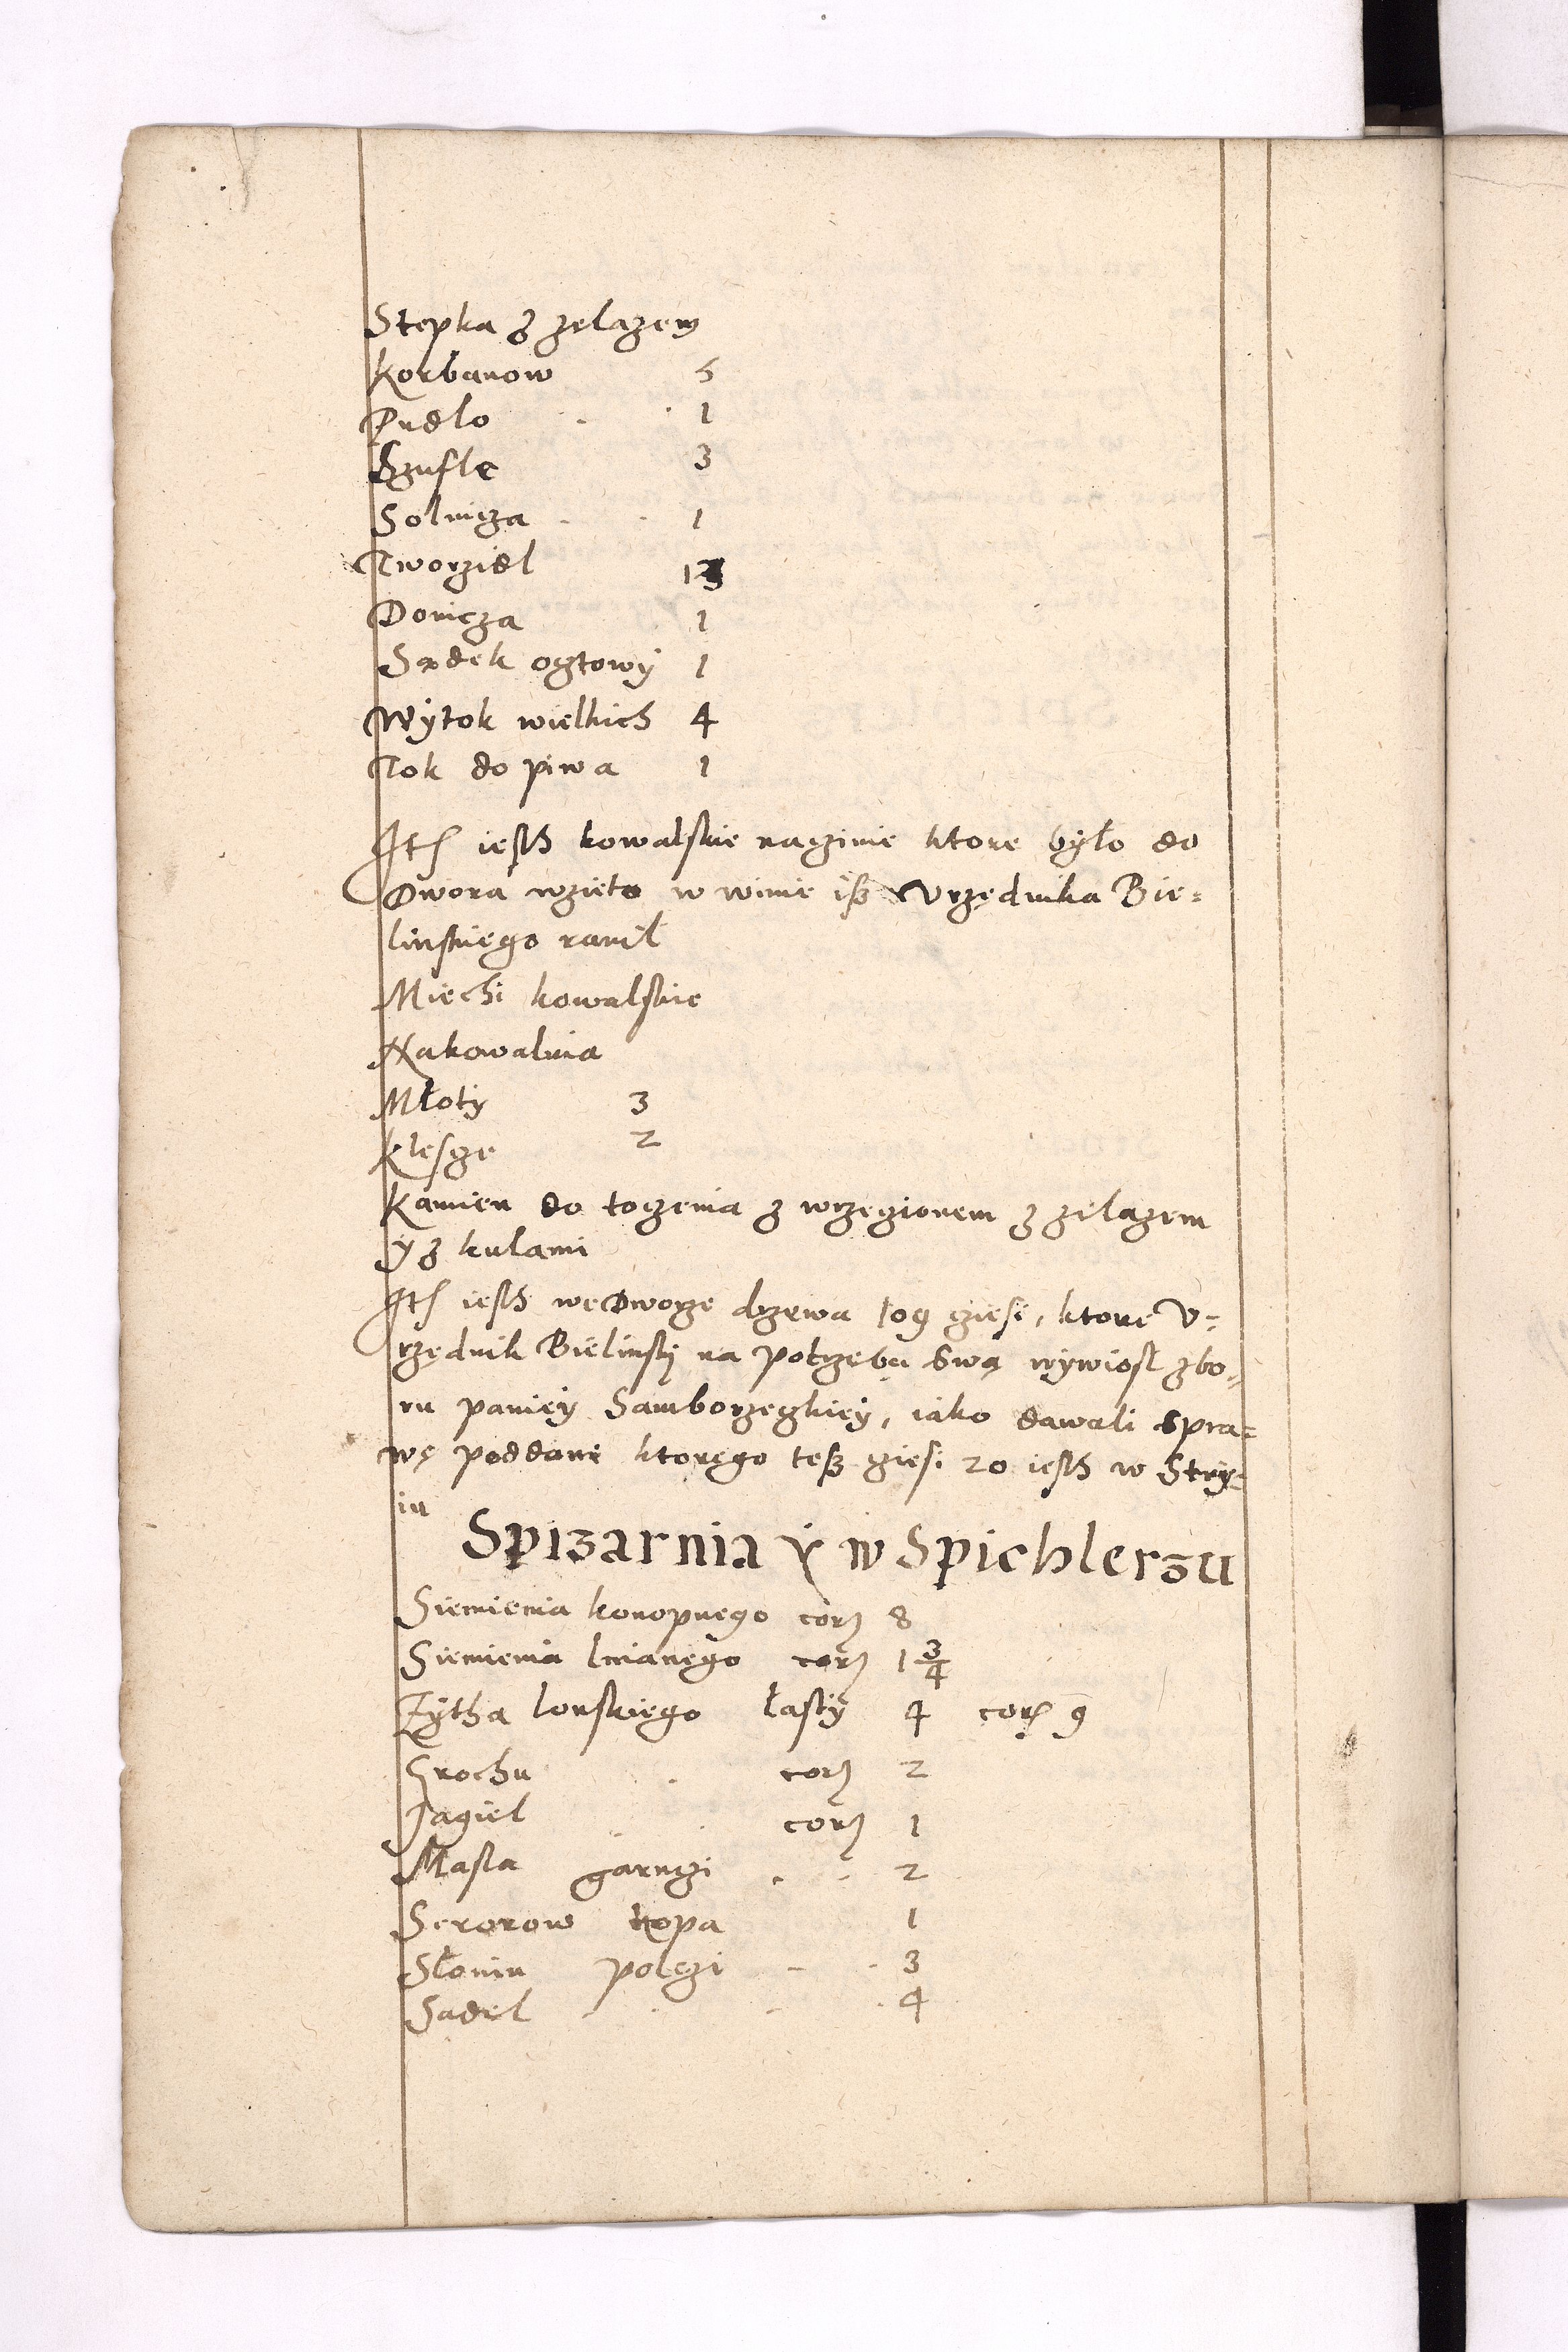 Stępka z zelazem
Korbanow 5
Pudlo 1
Szufle 3
Solnicza 1
Tworzidl
Donicza 1
Sądek oztowy 1
Wytok wielkich 4
Tok do piwa 1
Ite iesth kowalskie naczinie ktore było do
Dwora wzieto w winie isz Vrzędnika Bie=
linskiego ranil
Miechi kowalskie
Nakowalnia
Młoty 3
Klescze 2
Kamien do toczenia z wrzecionem z zelazem
y z kulami
Ite iesth we Dworze drzewa 109 ziesi, ktore V=
rzędnik Bielinsky na potrzebu swą wywiosl z bo=
ru paniey Samborzeczkiey, iako dawali spra=
wę poddani ktorego tesz ziesi 20 iesth w Stry=
iu
Spizarnia y w Spichlerzu
Siemienia konopnego cor 8
Siemienia lnianego cor 1 3/4
Zytha lonskiego łasty 4 cor 9
Grochu cor 2
Jagiel cor 1
Masla garnczi 2
Serorow kopa 1
Słoniu polczi 3
Sadel 4